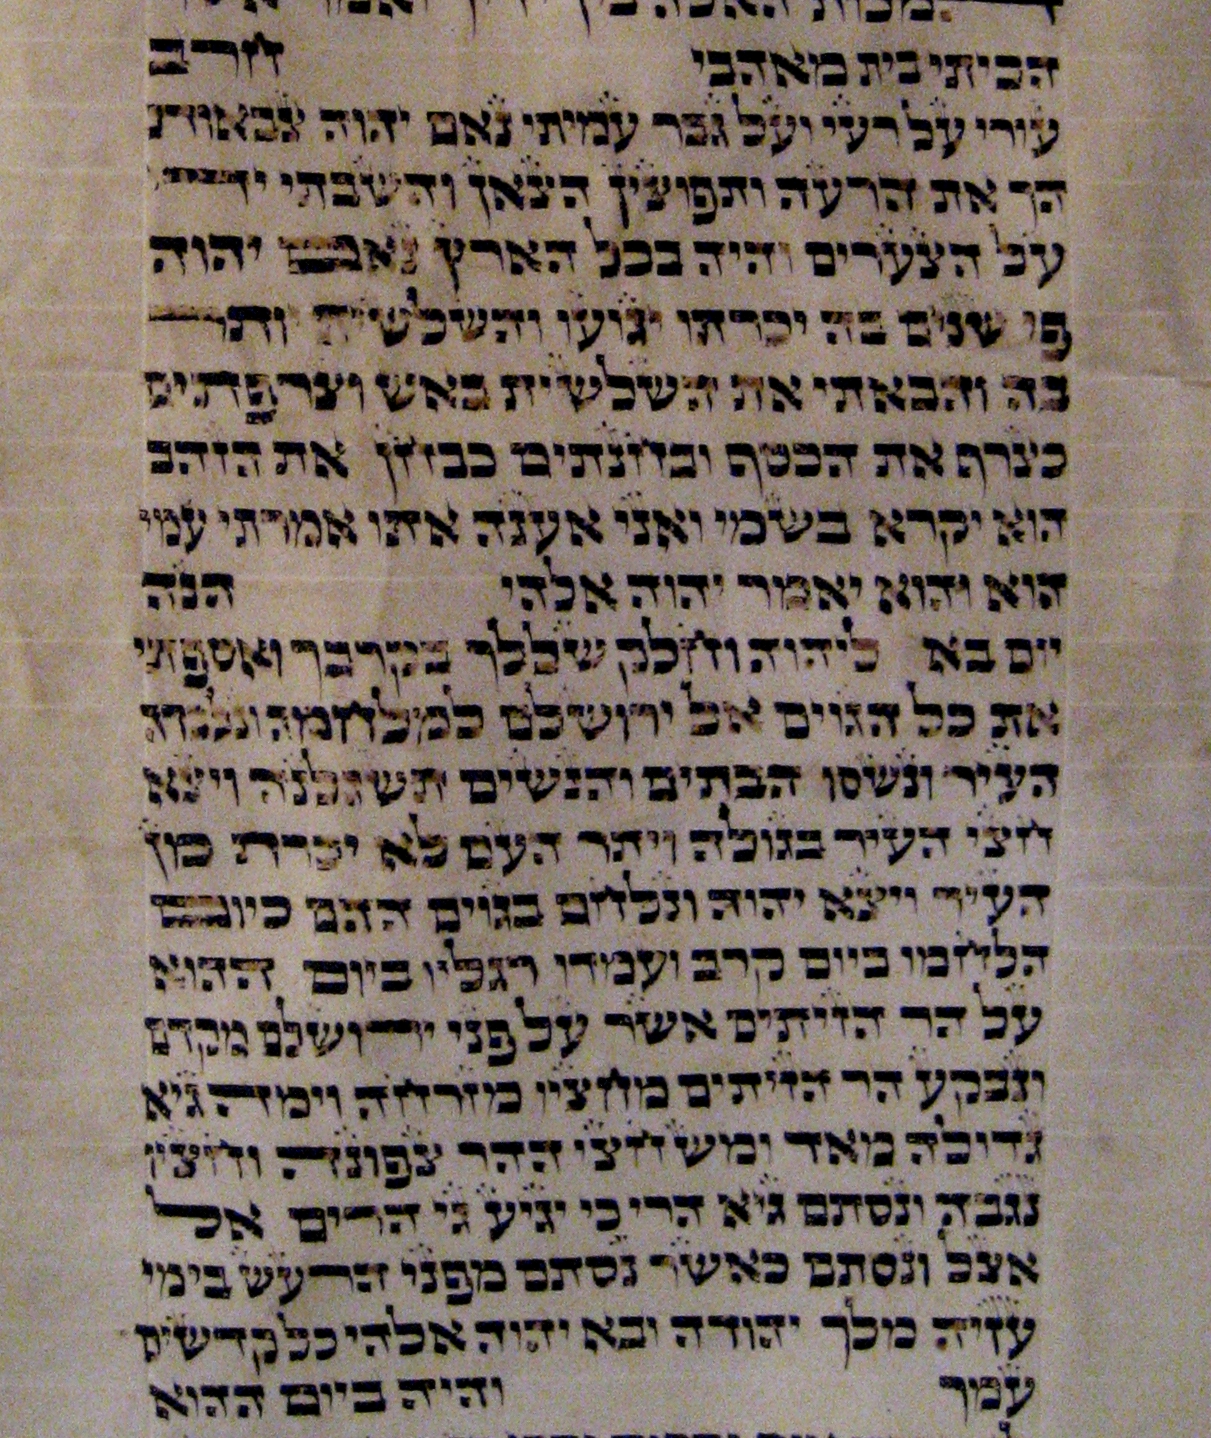 הכיתי בית מאהבי חרב
עורי על רעי ועל גבר עמיתי נאם יהוה צבאות
הך את הרעה ותפוצין הצאן והשבתי ידי
על הצערים והיה בכל הארץ נאם יהוה
פי שנים בה יכרתו יגועו והשלשית יותר
בה והבאתי את השלשית באש וצרפתים
כצרף את הכסף ובחנתים כבחן את הזהב
הוא יקרא בשמי ואני אענה אתו אמרתי עמי
הוא והוא יאמר יהוה אלהי הנה
יום בא ליהוה וחלק שללך בקרבך ואספתי
את כל הגוים אל ירושלם למלחמה ונלכדה
העיר ונשסו הבתים והנשים תשגלנה ויצא
חצי העיר בגולה ויתר העם לא יכרת מן
העיר ויצא יהוה ונלחם בגוים ההם כיום
הלחמו ביום קרב ועמדו רגליו ביום ההוא
על הר הזיתים אשר על פני ירושלם מקדם
ונבקע הר הזיתים מחציו מזרחה וימה גיא
גדולה מאד ומש חצי ההר צפונה וחציו
נגבה ונסתם גיא הרי כי יגיע גי הרים אל
אצל ונסתם כאשר נסתם מפני הרעש בימי
עזיה מלך יהודה ובא יהוה אלהי כל קדשים
עמך והיה ביום ההוא